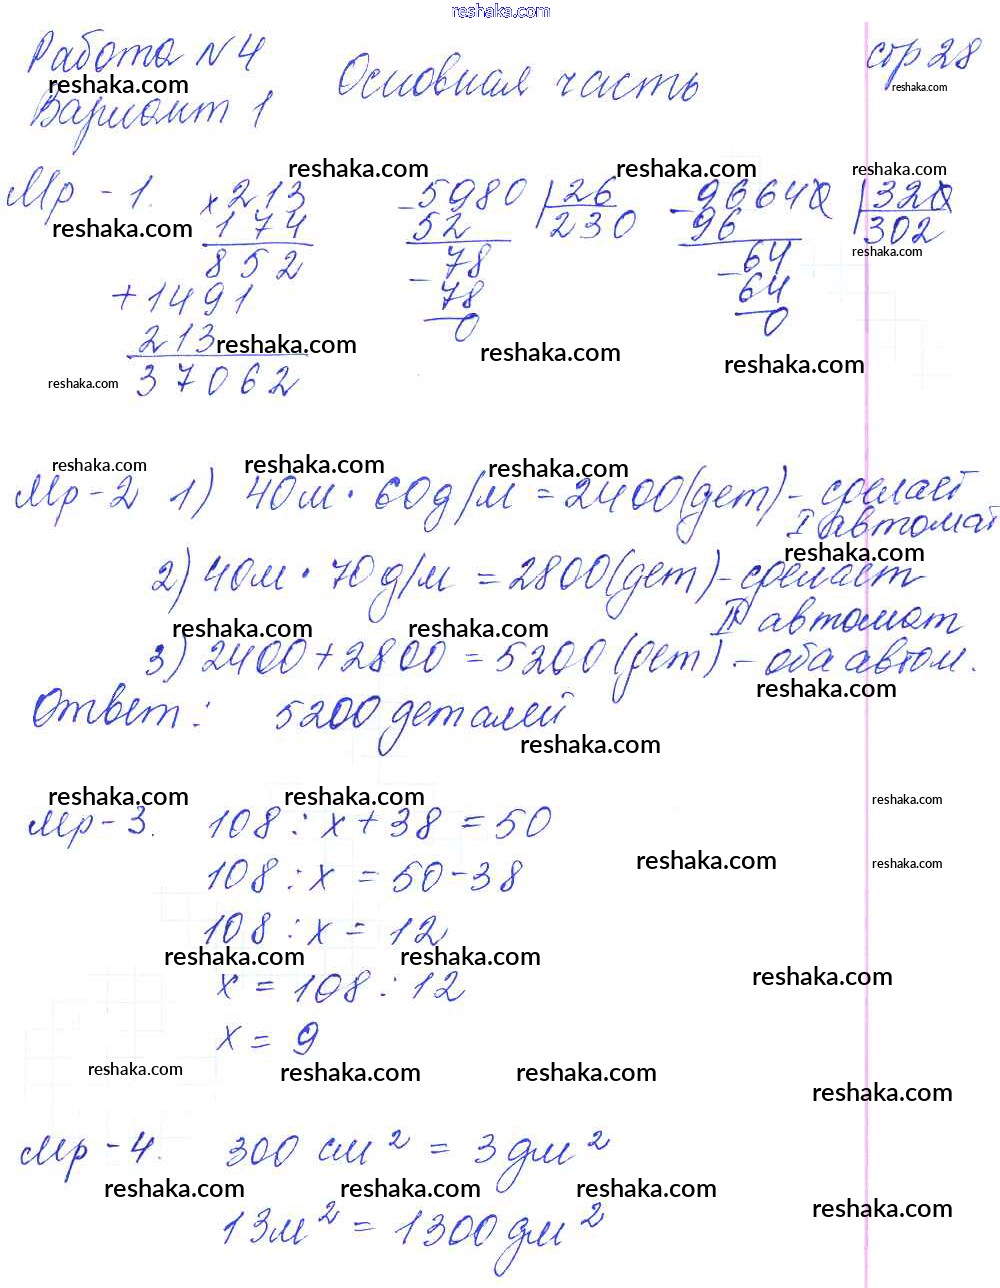 reshaka.com
Работа N 4
стр 28
Основная часть
reshaka.com
reshaka.com
Вариант 1
reshaka.com
reshaka.com
reshaka.com
Мр - 1.
× 213
174
852
+ 1491
213
37062
- 5980 | 26
52 230
- 78
78
0
- 96640 | 320
96 302
- 64
64
0
reshaka.com
reshaka.com
reshaka.com
reshaka.com
reshaka.com
reshaka.com
reshaka.com
reshaka.com
reshaka.com
Мр - 2 1) 40м · 60д/м = 2400(дет) - сделает
I автомат
reshaka.com
2) 40м · 70д/м = 2800(дет) - сделает
II автомат
reshaka.com
reshaka.com
3) 2400 + 2800 = 5200 (дет) - оба автом.
reshaka.com
Ответ: 5200 деталей
reshaka.com
reshaka.com
reshaka.com
reshaka.com
Мр - 3. 108 : х + 38 = 50
reshaka.com
reshaka.com
108 : х = 50 - 38
108 : х = 12
reshaka.com
reshaka.com
reshaka.com
х = 108 : 12
х = 9
reshaka.com
reshaka.com
reshaka.com
reshaka.com
Мр - 4. 300 см² = 3 дм²
reshaka.com
reshaka.com
reshaka.com
reshaka.com
13м² = 1300 дм²